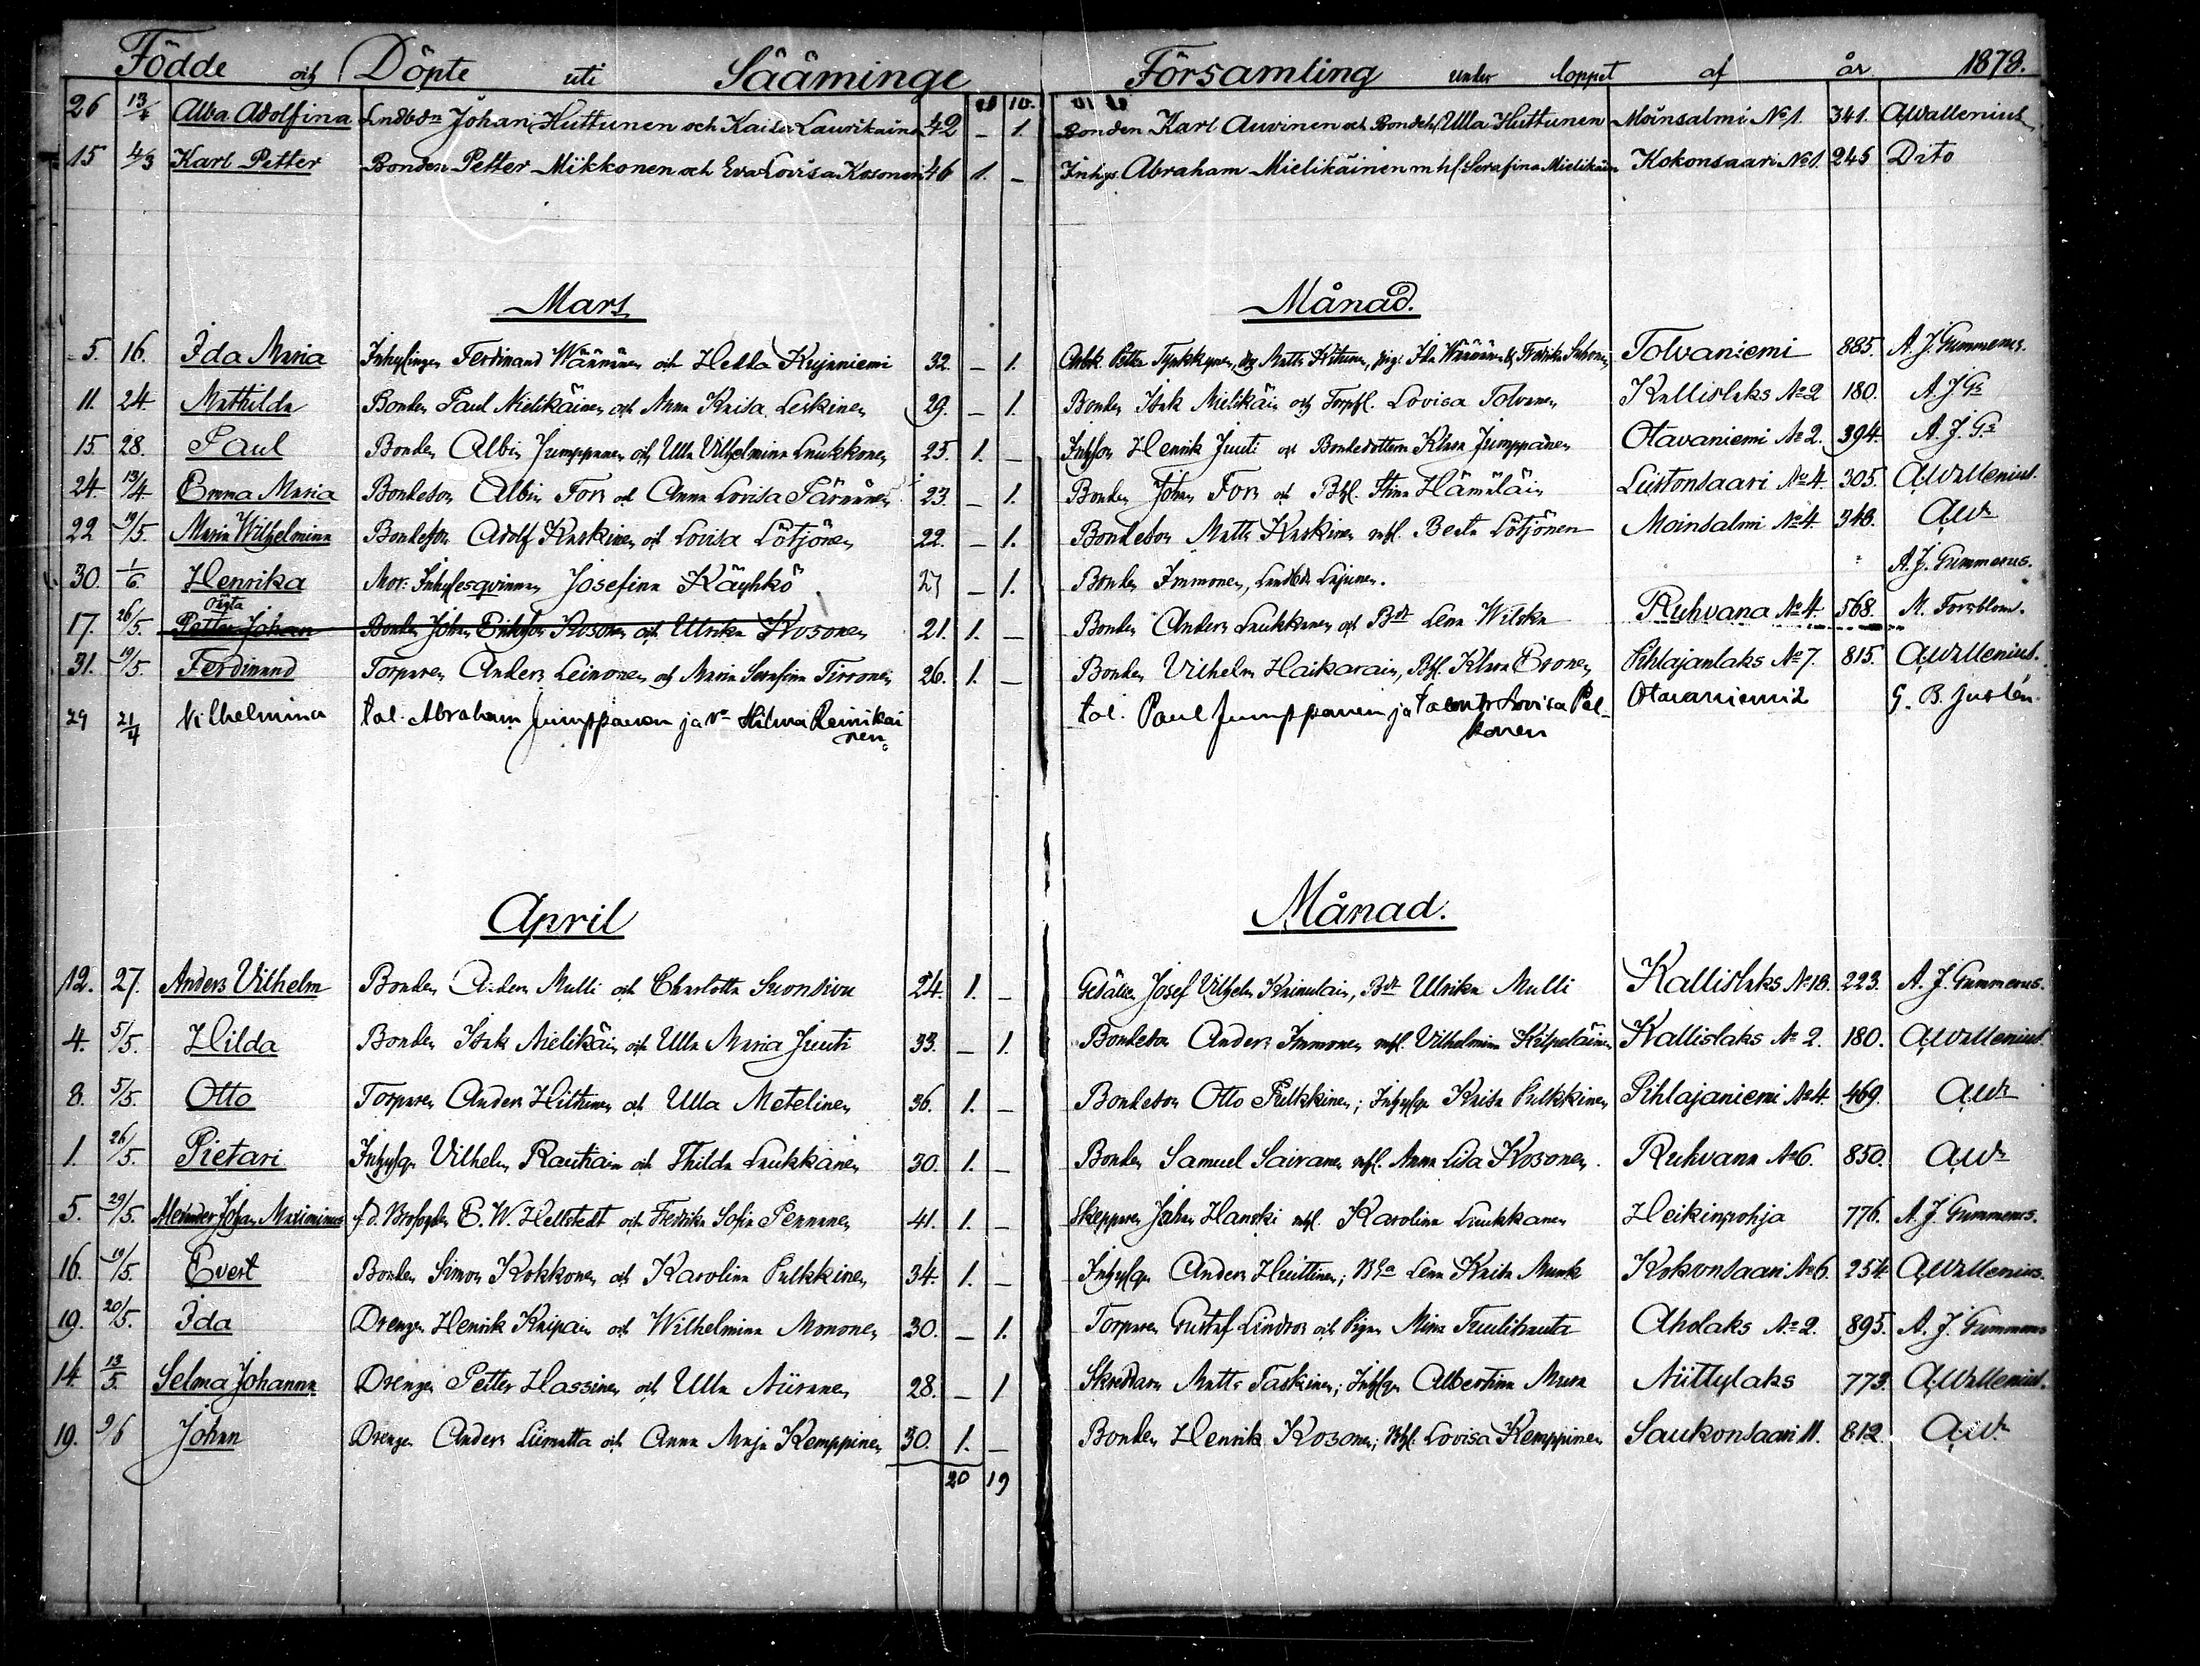 Födde och Döpte uti Sääminge Församling under loppet af år 1878.
26 13/4 Alba Adolfina Lndbdn Johan Huttunen och Kaisa Laurikain 42 – 1. Bonden Karl Auvinen och Bondeh. Ulla Huttunen Moinsalmi No 1. 341. AWallenius
15 4/3 Karl Petter Bonden Petter Mikkonen och Eva Lovisa Kosonen 46 1. – Inhys. Abraham Mielikäinen m hf. Serafina Mielikäin Kokonsaari No 1. 245 Dito
Mars Månad.
5. 16. Ida Maria Inhysingen Ferdinand Wännänen och Hedda Kujaniemi 32. – 1. Petter Tynkkynen, Matts Ida Wännänen & Fredrika Tolvaniemi 885. A. J. Gummerus.
11. 24. Mathilda Bonden Paul Mielikäinen och Anna Kaisa Leskinen 29. – 1. Bonden Isak Mielikäin och Torpfl. Lovisa Tolvanen Kallislaks No 2 180. A. J. Gs
15 28. Paul Bonden Albin Jumppanen och Ulla Vilhelmina Laukkanen 25. 1. – Henrik Juuti och Bondedottern Klara Jumppanen Otavaniemi No 2. 394. A. J. Gs
24. 13/4 Emma Maria Bondeson Albin Fors och Anna Lovisa Pärnänen 23. – 1. Bonden Johan Fors och Bhf. Stina Hämäläin Liistonsaari No 4. 305. AWallenius.
22 19/5. Maria Wilhelmina Bondeson Adolf Kaskinen och Lovisa Lötjönen 22. – 1. Bondeson Matts Kaskinen mhf. Beata Lötjönen Moinsalmi No 4. 348. AWs
30. 1/6 Henrika oägta Mor: Inhysesqvinnan Josefina Käyhkö 27 – 1. Bonden Immonen, Lndbdn Lajunen. A. J. Gummerus.
17. 26/5. Petter Johan Bonden Johan Eriksson Kosonen och Ulrika Kosonen 21. 1. – Bonden Anders Laukkanen och Bdr Lena Wilska Ruhvana No 4. 568. N. Forsblom.
31. 19/5. Ferdinand Torparen Anders Leinonen och Maria Serafina Tirronen 26. 1. – Bonden Vilhelm Haikarain, Bhf. Klara Eronen Pihlajanlaks No 7. 815. AWallenius.
29 21/4 Vilhelmina tal. Abraham Jumppanen ja vo Hilma Reinikainen tal. Paul Jumppanen ja Lovisa Pelkonen Otavaniemi 2 G. B. Juslén.
April Månad.
12. 27. Anders Vilhelm Bonden Anders Mulli och Charlotta Suonsivu 24. 1. – Josef Vilhelm Kaimulain, Bdr Ulrika Mulli Kallislaks No 18. 223. A. J. Gummerus.
4. 5/5. Hilda Bonden Isak Mielikäin och Ulla Maria Juuti 33. – 1. Bondeson Anders Immonen mhf. Vilhelmina Kilpeläinen Kallislaks No 2. 180. AWallenius.
8. 5/5. Otto Torparen Anders Hiltunen och Ulla Metelinen 36. 1. – Bondeson Otto Pulkkinen; Inhysqv Kaisa Pulkkinen Pihlajaniemi No 4. 469. AWs
1. 26/5. Pietari Inhysg. Vilhelm Rautiain och Thilda Laukkanen 30. 1. – Bonden Samuel Sairanen mhf. Anna Lisa Kosonen. Ruhvana No 6. 850. AWs
5. 29/5. Alexander Johan Maximinus f.d. Brofogden E. W. Hellstedt och Fredrika Sofia Pennanen 41. 1. – Skepparen Johan Hanski mhf. Karolina Laukkanen Heikinpohja 776. A. J. Gummerus.
16. 19/5. Evert Bonden Simon Kokkonen och Karolina Pulkkinen 34. 1. – Inhysg. Anders Huittinen; Lena Kaisa Munk Kokonsaari No 6. 254. AWallenius.
19. 20/5. Ida Drengen Henrik Kaipain och Wilhelmina Mononen 30. – 1. Torparen Gustaf Lindros och Pigan Mina Tuulihauta Aholaks No 2. 895. A. J. Gummerus
14. 13/5. Selma Johanna Drengen Petter Hassinen och Ulla Niiranen 28. – 1 Skräddaren Matts Taskinen; Inhysqv Albertina Musa Niittylaks 773. AWallenius.
19. 9/6 Johan Drengen Anders Liimatta och Anna Maja Kemppinen 30. 1. – Bonden Henrik Kosonen; Bhf. Lovisa Kemppinen Saukonsaari 11. 812. AWs
20 19